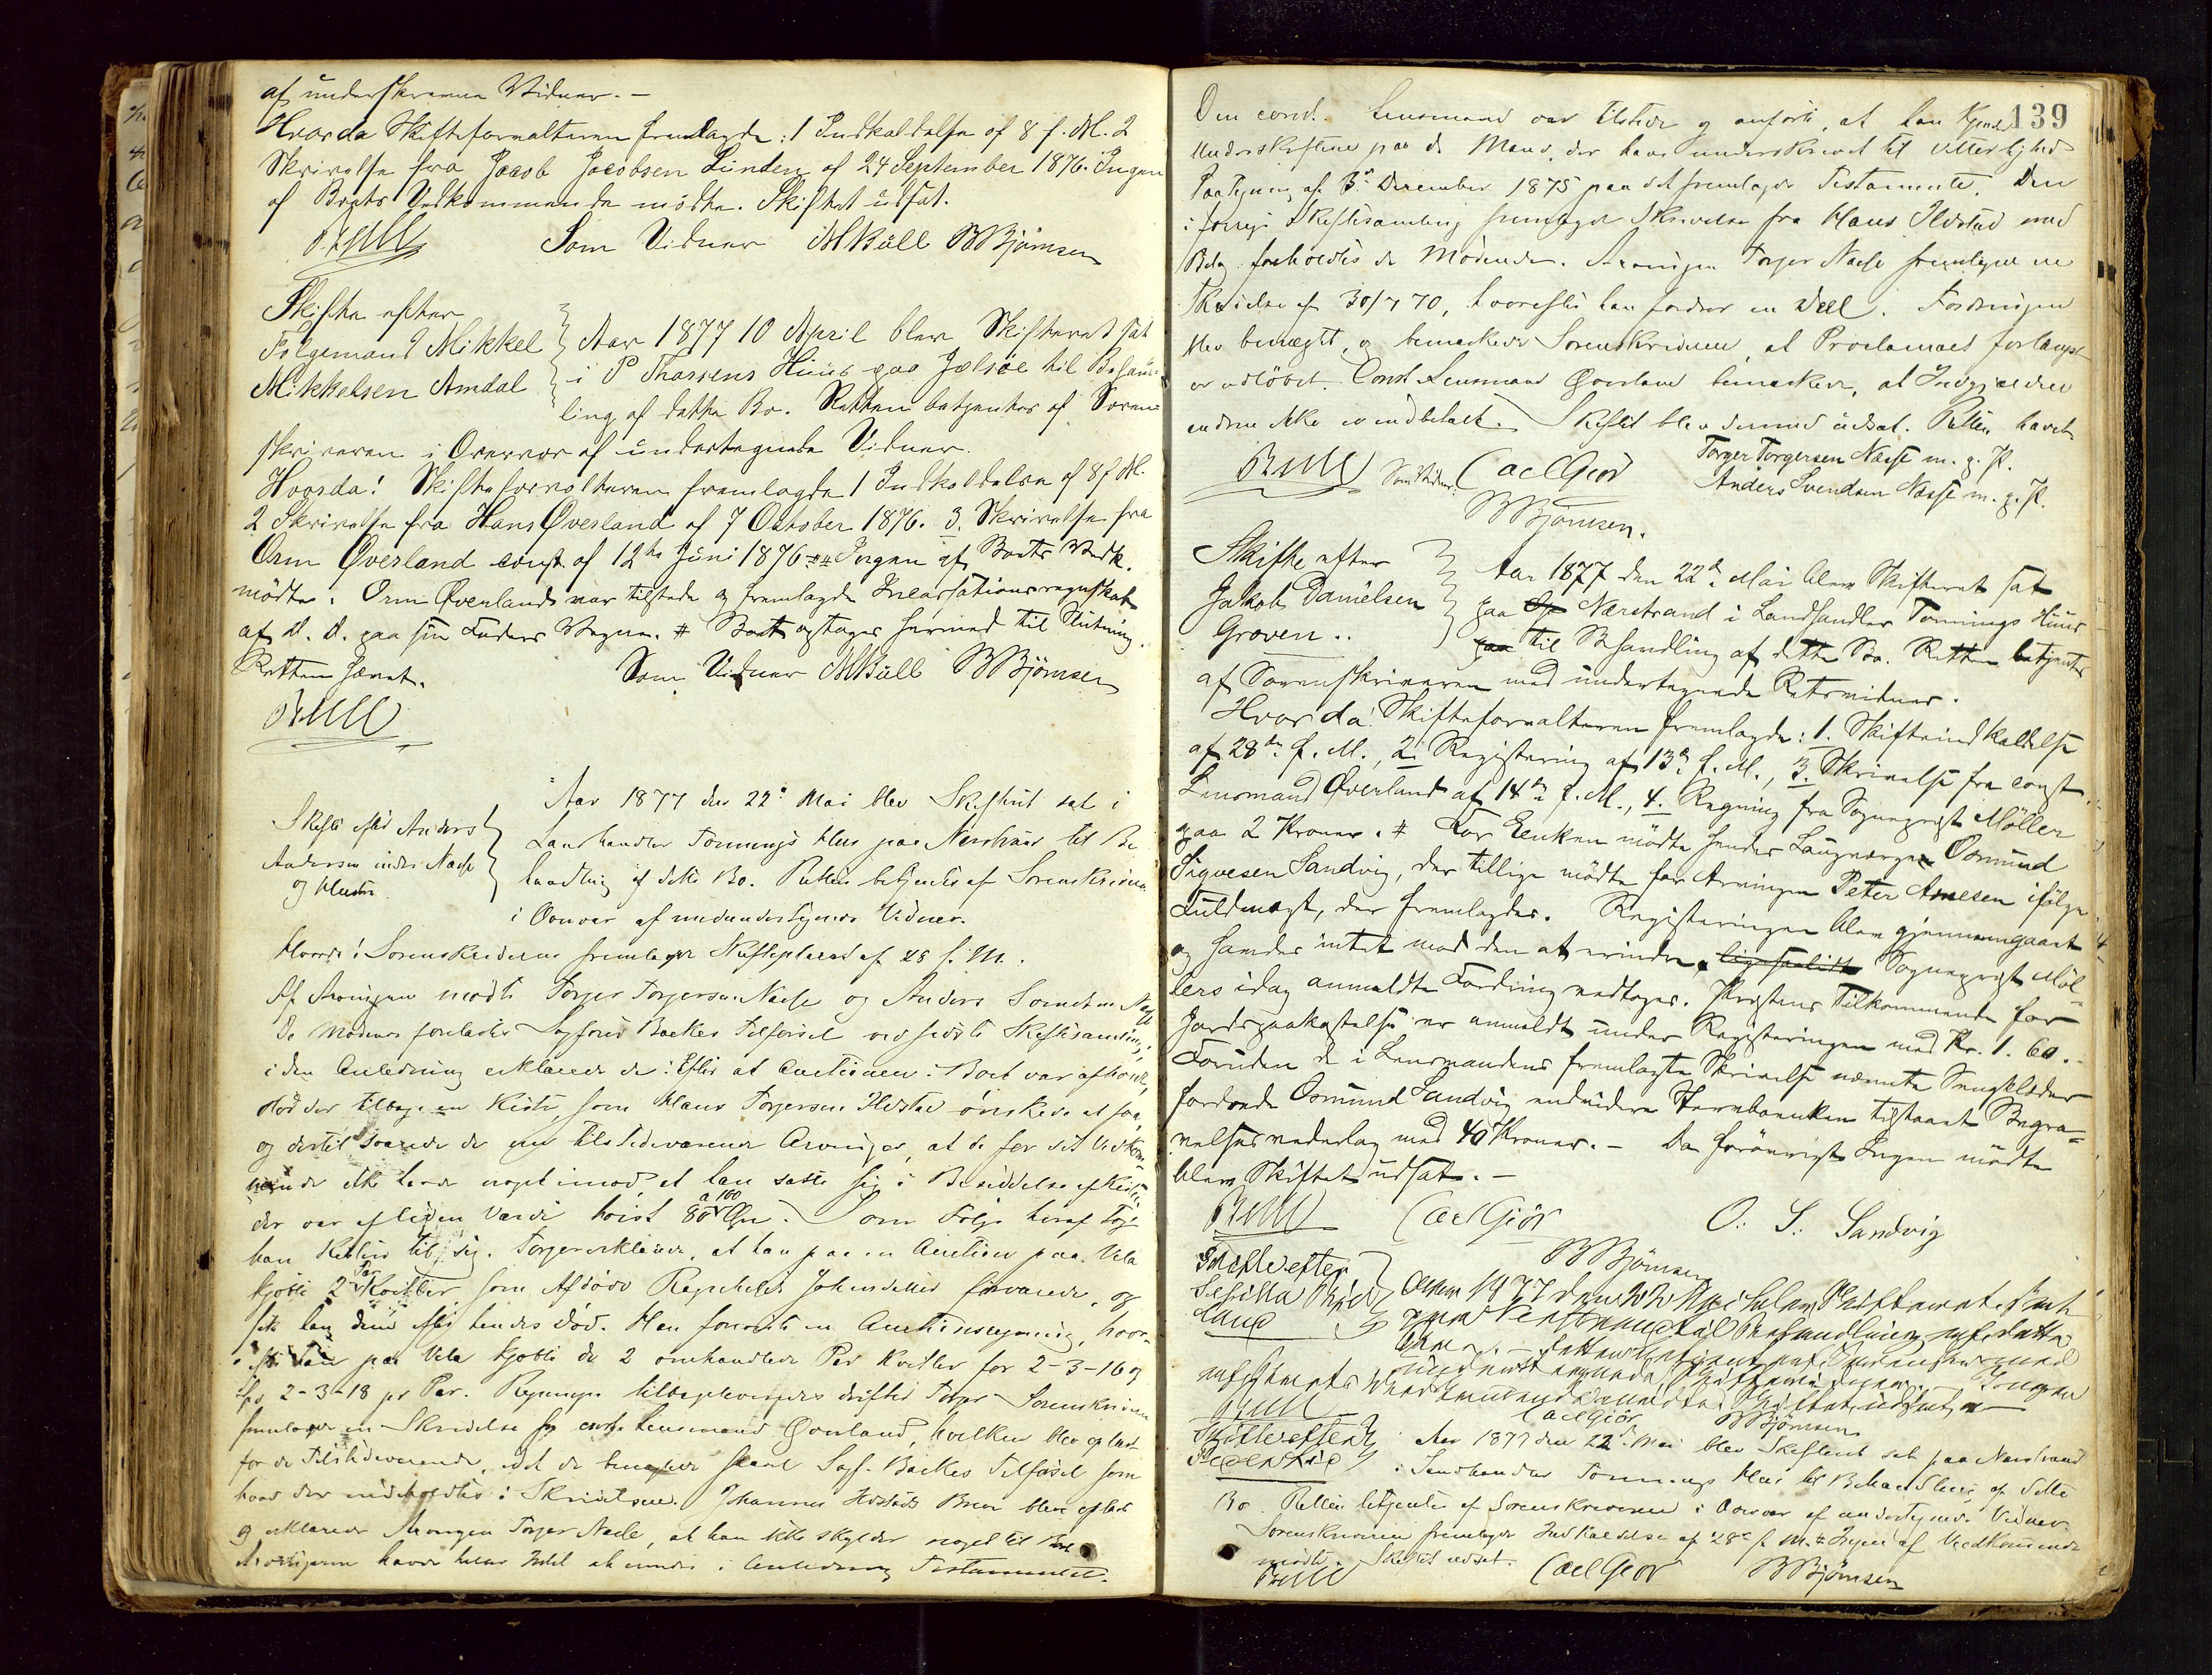 af underskrevne Vidner. –
Hvorda Skifteforvalteren fremlagde: 1 Indkaldelse af 8 f. M. 2
Skrivelse fra Jacob Jacobsen Linden af 24 September 1876. Ingen
af Boets Vedkommende mødte. Skiftet udsat.
Bull Som Vidner MBull BBjørnsen
Skifte efter
Følgemand Mikkel
Mikkelsen Amdal
Aar 1877 10 April blev Skifteret sat
i P Thassens Huus paa Jælsöe til Behand-
ling af dette Bo. Retten betjentes af Soren-
skriveren i Overvær af undertegnede Vidner.
Hvorda! Skifteforvalteren fremlagde 1 Indkaldelse af 8 f M.
2 Skrivelse fra Hans Øverland af 7 October 1876. 3. Skrivelse fra
Orm Øverland const af 12te Juni 1876 Ingen af Boets Vedk.
mødte. Orm Øverland var tilstede og fremlagde Incassationsregnskab
af d. D. paa sin Faders Vegne. # Boet optages hermed til Slutning.
Retten hævet. Som Vidner MBull BBjørnsen
Bull
Skifte efter Anders
Andersen indre Næsse
og Hustru
Aar 1877 den 22de Mai blev Skifteret sat i
Landhandler Tonnings Hus paa Nerstrand til Be
handling af dette Bo. Retten betjentes af Sorenskriveren
i Overvær af medundertegnede Vidner.
Hvorda! Sorenskriveren fremlagde af 28 f. M.
Af Arvingene mødte Torger Torgersen Næsse og Anders Svendsen Næsse
De mødende foreholdtes Sagfører Backes Tilførsel ved sidste Skiftesamling;
i den Anledning erklærede de: Efter at Auctionen i Boet var afholdt,
stod der tilbage en Kiste, som Hans Torgersen Ilestad ønskede at faa,
og dertil svarede de nu tilstedeværende Arvinger, at de for sit Vedkom-
mende ikke havde noget imod at han satte sig i Besiddelse af Kisten,
der var af liden Værdi høist 80 a 100 Øre. Som Følge heraf tog
han Kisten til sig. Torger erklærede, at han paa en Auction paa Vela
kjøbte 2 Par Kvitler som Afdøde Ragnhilds forvarede, og
fik han dem efter hendes død. Han foreviste en Auctionsregning, hvor-
efter han paa Vela kjøbte de 2 omhandlede Par Kvitler for 2-3-16 og
for 2-3-18 pr Par. Regningen tilbageleveredes derefter Torger Sorenskriveren
fremlagde en Skrivelse fra const. Lensmand Øverland, hvilken blev oplæst
for de Tilstedeværende, Sagf. Backes Tilførsel som
hvad der indeholdtes i Skrivelsen. Johannes Brev blev oplæst
og erklærede Arvingen Torger Næsse, at han ikke skylder noget til Boet
Arvingerne havde heller Intet at erindre i Anledning Testamentet.
139
Den const. Lensmand var tilstede og anførte, at han kjender
Underskriftene paa de Mænd, der have underskrevet til Vitterlighed
Paategning af 3de December 1875 paa det fremlagde Testamente. Den
i forrige Skiftesamling fremlagde Skrivelse fra Hans Ilestad med
Bilag foreholdtes de Mødende. Arvingen Torger Næsse fremlagde en
Skrivelse af 30/7 70, hvorefter han fordrer en Deel. Fordringen
blev benægtet, og bemærkede Sorenskriveren, at Proclamaet forlængst
er udløbet. Const Lensmand Øverland bemærkede, at Indgjælden
endnu ikke er indbetalt. Skiftet blev dermed udsat. Retten hævet.
Bull Som Vidner: CaelGiör Torger Torgersen Næsse m. p. P.
BBjørnsen. Anders Svendsen Næsse m. p. P.
Skifte efter
Jakob Danielsen
Groven..
Aar 1877 den 22de Mai blev Skifteret sat
paa Nærstrand i Landhandler Tonnings Huus
paa til Behandling af dette Bo. Retten betjentes
af Sorenskriveren med undertegnede Retsvidner.
Hvorda! Skifteforvalteren fremlagde: 1. Skifteindkaldelse
af 28de f. M., 2. Registering af 13de f. M., 3. Skrivelse fra const
Lensmand Øverland af 14de f. M., 4. Regning fra Sogneprest Möller
paa 2 Kroner. # For Enken mødte hendes Laugværge Osmund
Sigvesen Sandvig, der tillige mødte for Arvingen Peter Arnesen ifølge
Fuldmagt, der fremlagdes. Registeringen blev gjennemgaaet
og havdes intet mod den at erindre. Sogneprest Möl-
lers idag anmeldte Fordring vedtoges. Prestens Tilkommende for
Jordspaakastelse er anmeldt under Registeringen med Kr. 1. 60.-
Foruden de i Lensmandens fremlagte Skrivelse nævnte Sengklæder
fordrede Osmund Sandvig endvidere Stervboenken tilstaaet Begra-
velsesvederlag med 40 Kroner. – Da forøvrigt Ingen mødte
blev Skiftet udsat. –
Bull CaelGiör O. S. Sandvig
BBjørnsen
Skifte efter
Aar 1877 den 22 Mai blev Skifteret sat
paa Nerstrand til Behandling af dette
Bo. – Retten betjent af Sorenskriveren med
undertegnede Ingen
af Boets Vedkommende Skiftet udsat
Bull CaelGiör BBjørnsen
Skifte efter
Aar 1877 den 22de Mai blev Skifteret sat paa Nærstrand
i Landhandler Tonnings Hus til Behandling af dette
Bo. Retten betjentes af Sorenskriveren i Overvær af undertegnede Vidner.
Sorenskriveren fremlagde Indkaldelse af 28de f M. # Ingen af Vedkommende
mødte. Skiftet udsat. CaelGiör BBjørnsen
Bull